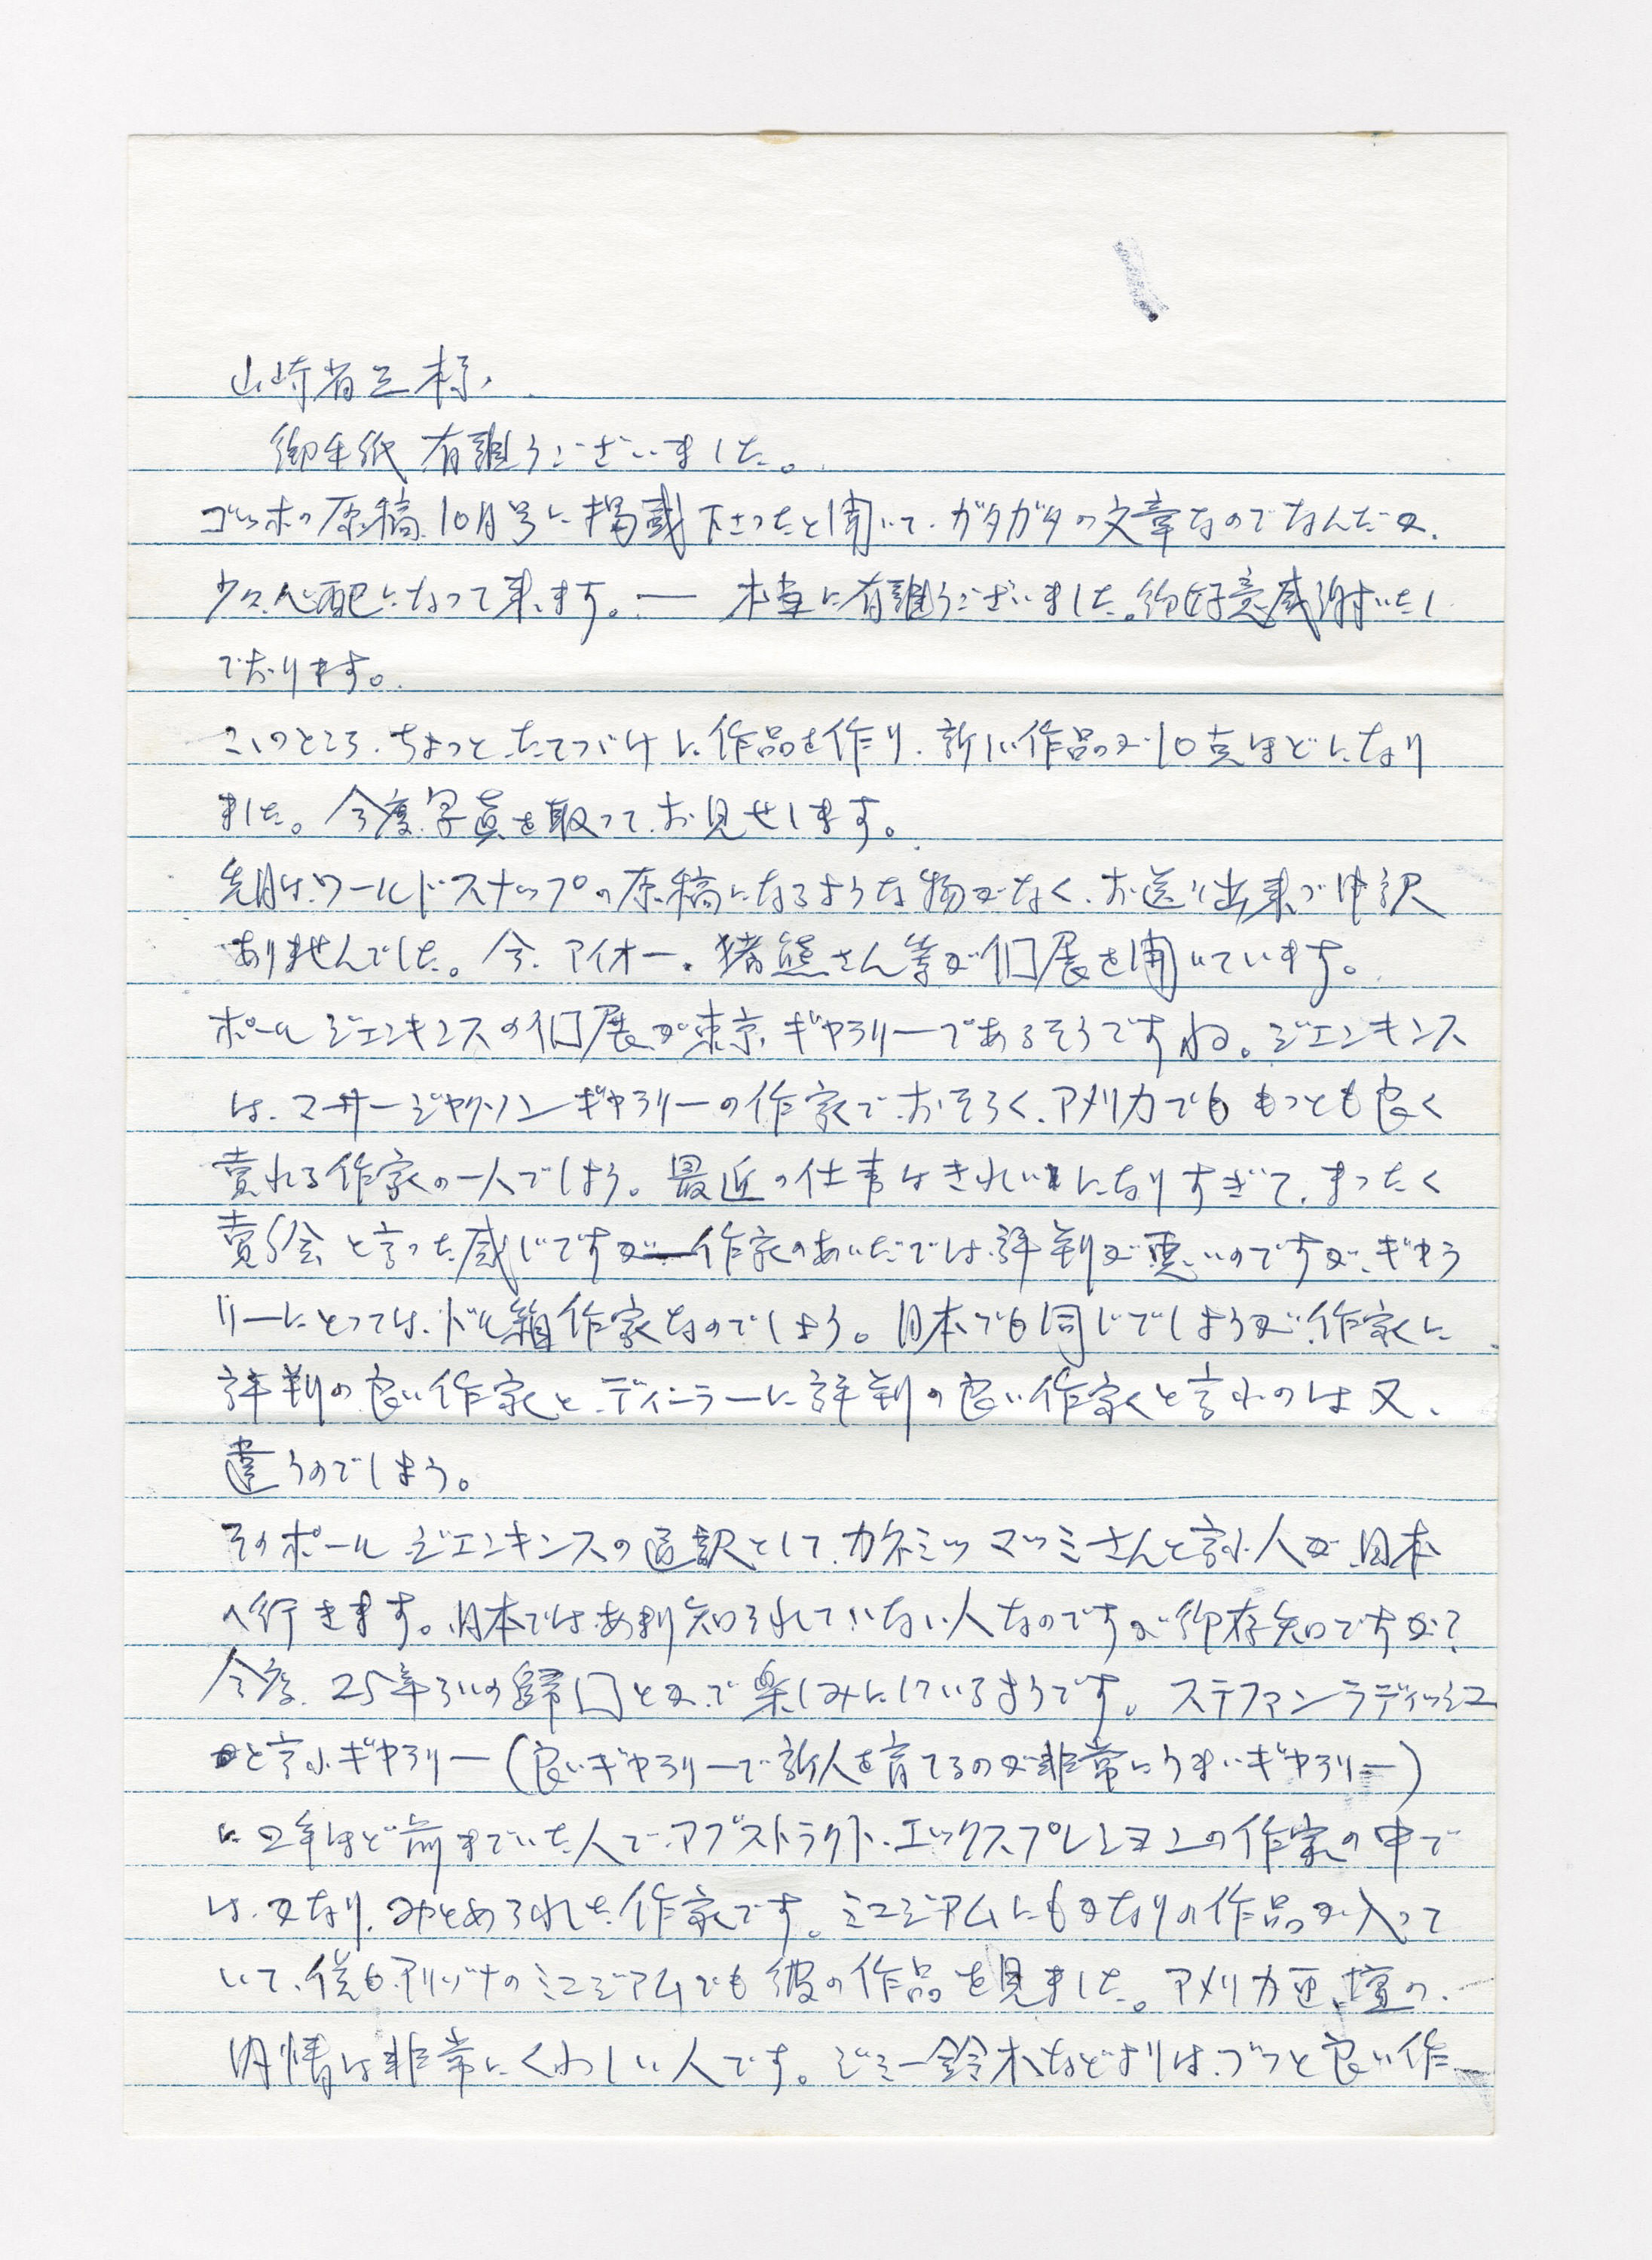 山崎省三様、
御手紙有難うございました。
ゴッホの原稿、10月号に掲載下さったと聞いて、ガタガタの文章なのでなんだか、
少々心配になって来ます。― 本当に有難うございました。御好意感謝いたし
ております。
このところ、ちょっとたてつづけに作品を作り、新しい作品が10点ほどになり
ました。今度写真を取ってお見せします。
先月は、ワールドスナップの原稿になるような物がなく、お送り出来ず申訳
ありませんでした。今、アイオー、猪熊さん等が個展を開いています。
ポール ジェンキンスの個展が東京ギャラリーであるそうですね。ジェンキンス
は、マーサージャクソンギャラリーの作家で、おそらく、アメリカでももっとも良く
売れる作家の一人でしょう。最近の仕事はきれいになりすぎて、まったく
売絵と言った感じですが 作家のあいだでは、評判が悪いのですが、ギャラ
リーにとっては、ドル箱作家なのでしょう。日本でも同じでしょうが、作家に
評判の良い作家と、ディーラーに評判の良い作家と言うのは又、
違うのでしょう。
そのポール ジェンキンスの通訳として、カネミツ マツミさんと言う人が、日本
へ行きます。日本では、あまり知られていない人なのですが御存知ですか?
今度、25年ぶりの帰国とかで楽しみにしているようです。ステファンラディッシュ
と言うギャラリー(良いギャラリーで新人を育てるのが非常にうまいギャラリー)
に2年ほど前までいた人で、アブストラクト、エックスプレションの作家の中で
は、かなり、みとめられた作家です。ミュジアムにもかなりの作品が入って
いて、僕も、アリゾナのミュジアムでも彼の作品を見ました。アメリカ画壇の、
内情は非常にくわしい人です。ジミー鈴木などよりは、ズット良い作